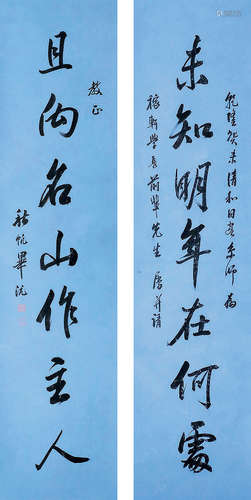 未知明年在何處
乾隆癸未清和日書於京師為
稼軒學長前輩先生屬并請
且向名山作主人
教正
秋帆畢沅